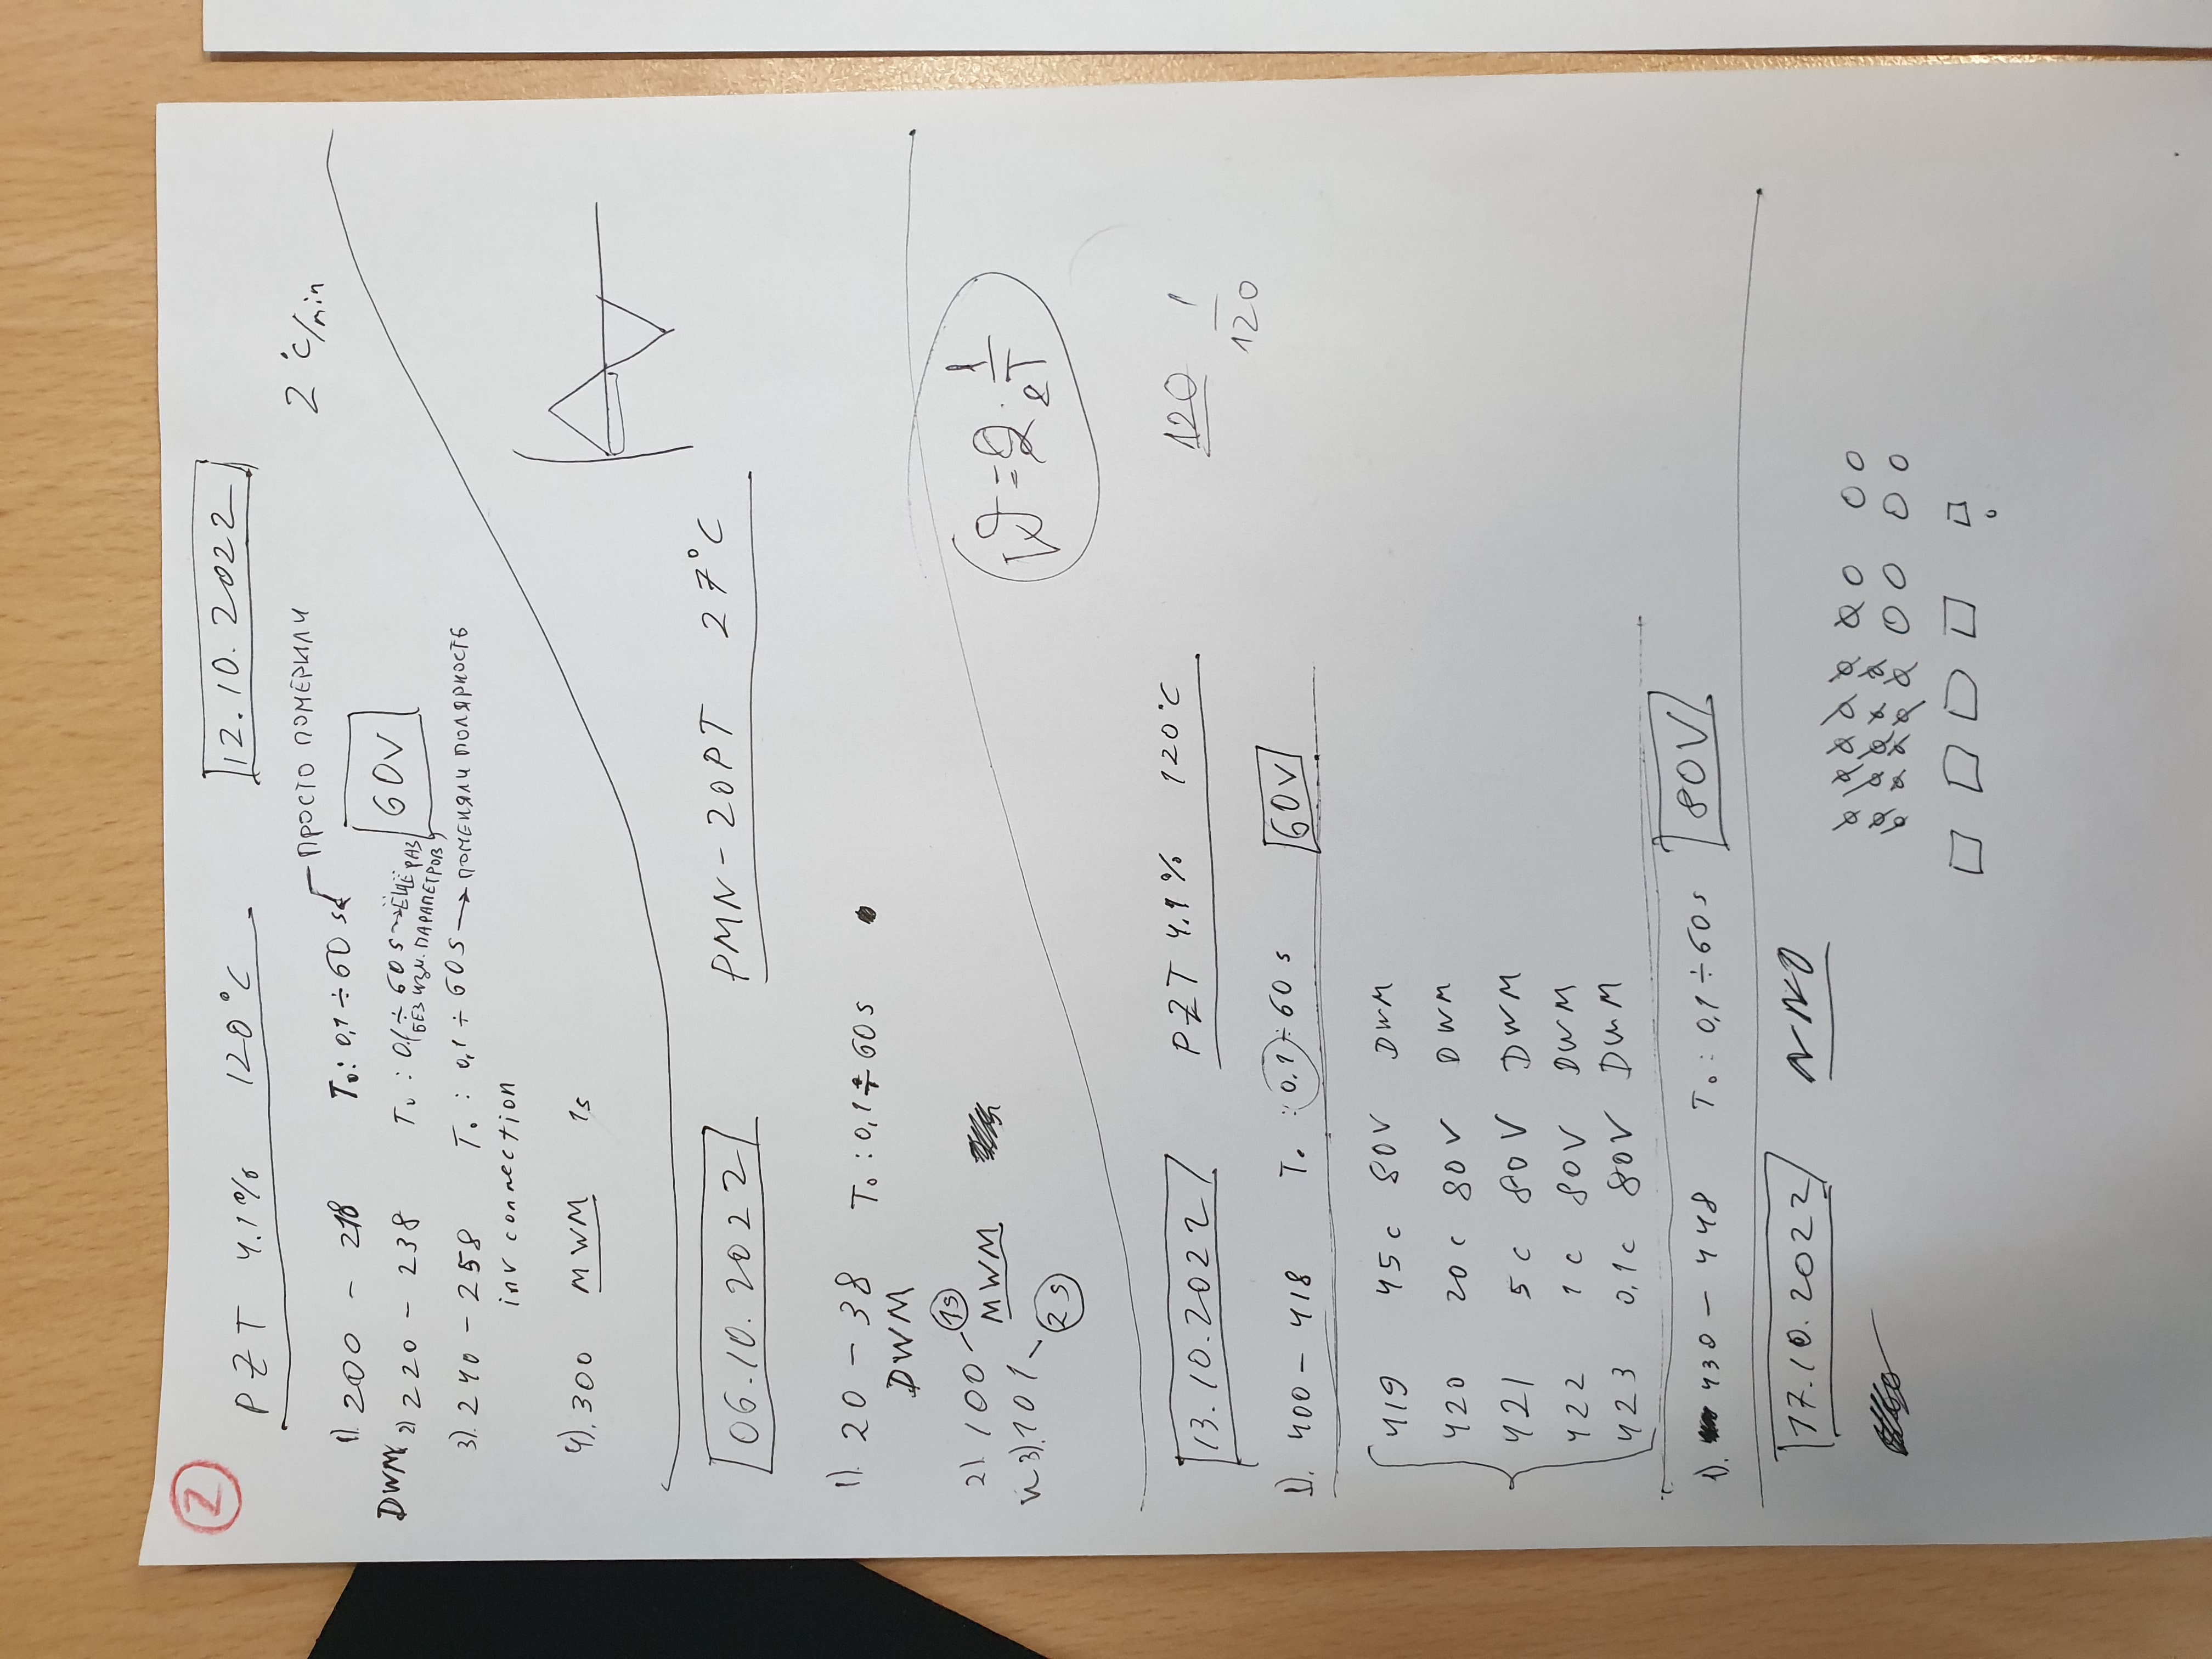 2
PZT 4.1% 120°C
12.10.2022
2 °C/min
1). 200 - 218 T₀: 0,1 ÷ 60 s ПРОСТО ПОМЕРИЛИ
DWM 2) 220 - 238 T₀: 0,1 ÷ 60 s → ЕЩЁ РАЗ
(БЕЗ ИЗМ. ПАРАМЕТРОВ)
60V
3). 240 - 258 T₀: 0,1 ÷ 60 s → ПОМЕНЯЛИ ПОЛЯРНОСТЬ
inv connection
4). 300 MWM 1s
06.10.2022 PMN-20PT 27°C
1). 20 - 38 T₀: 0,1 ÷ 60 s
DWM
2). 100 - 1s
MWM
и 3). 101 - 2s
= 2 · 1/2T
13.10.2022 PZT 4.1% 120°C
120 1/120
1). 400 - 418 T₀: 0.1 ÷ 60 s 60V
419 45 c 80V DWM
420 20 c 80V DWM
421 5 c 80V DWM
422 1 c 80V DWM
423 0,1 c 80V DWM
1). 430 - 448 T₀: 0,1 ÷ 60 s 80V
17.10.2022 NNO